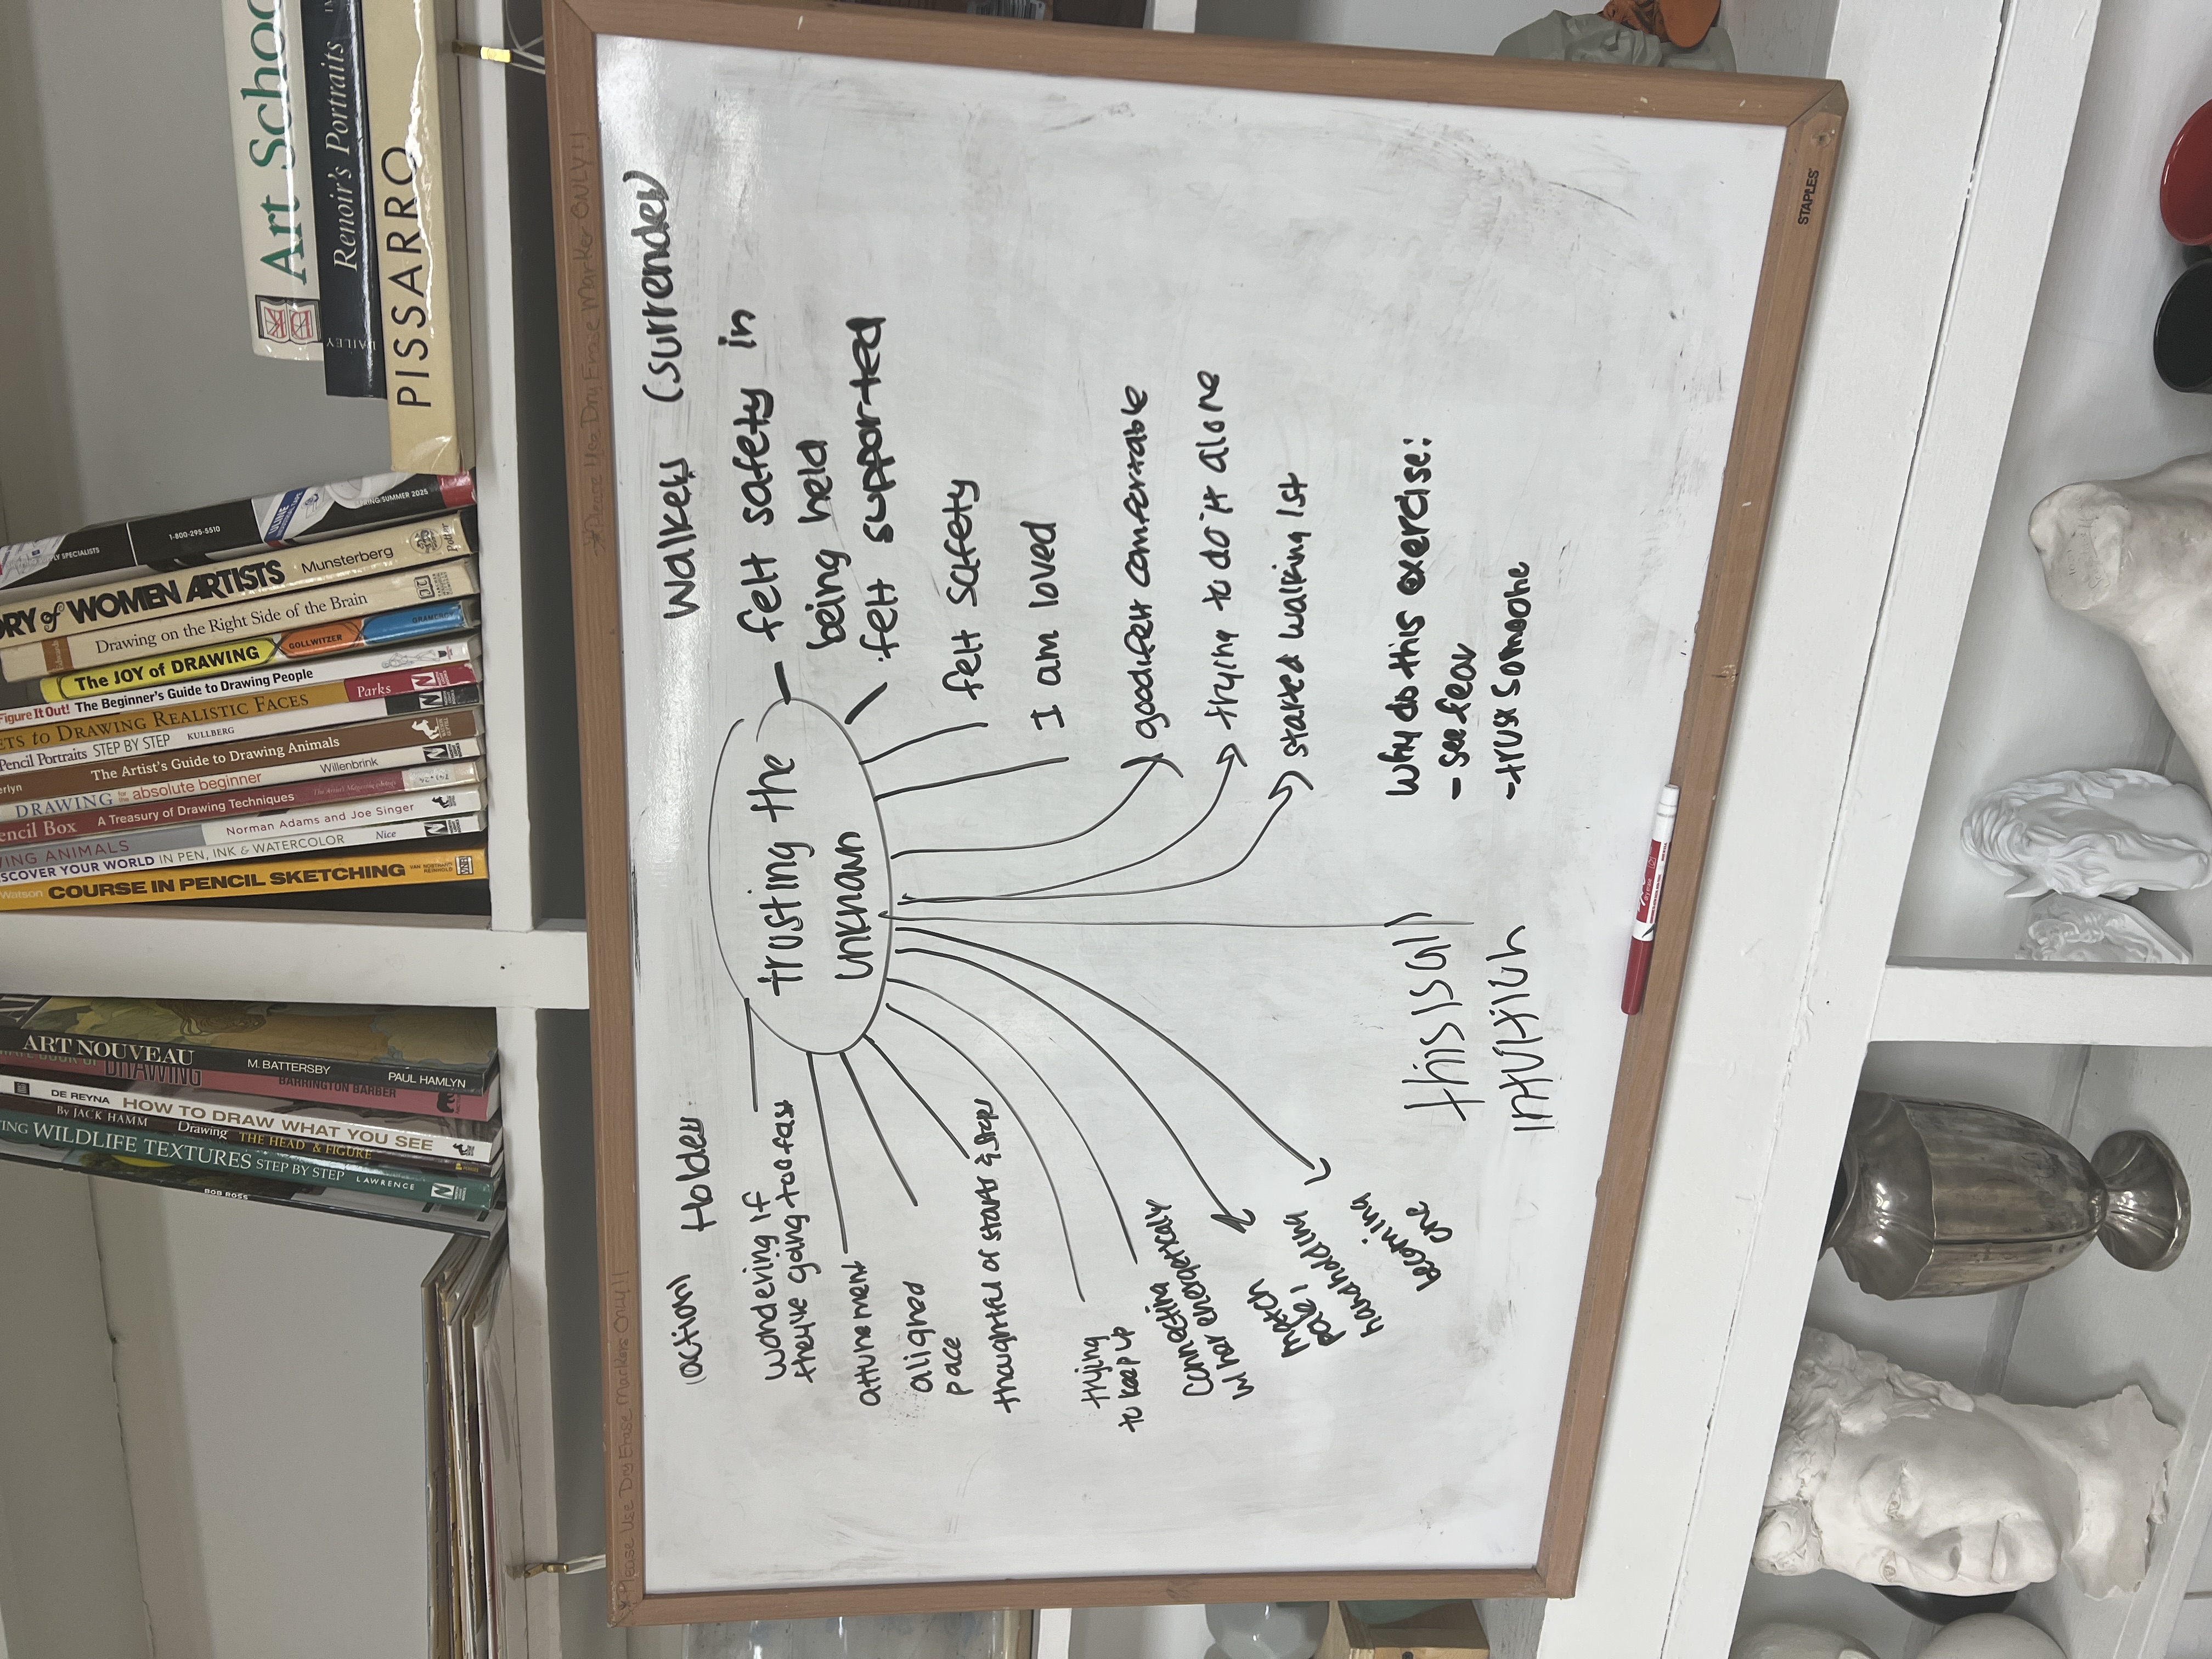 Art School
Renoir's Portraits
AILEY
PISSARRO
1-800-295-5510
ULINE
SPRING/SUMMER 2025
Y SPECIALISTS
ORY of WOMEN ARTISTS Munsterberg
Drawing on the Right Side of the Brain
The JOY of DRAWING GOLLWITZER
Figure It Out! The Beginner's Guide to Drawing People
ETS to DRAWING REALISTIC FACES Parks
Pencil Portraits STEP BY STEP KULLBERG
erlyn The Artist's Guide to Drawing Animals
DRAWING for the absolute beginner Willenbrink
encil Box A Treasury of Drawing Techniques
WING ANIMALS Norman Adams and Joe Singer
SCOVER YOUR WORLD IN PEN, INK & WATERCOLOR Nice
Watson COURSE IN PENCIL SKETCHING VAN NOSTRAND REINHOLD
ART NOUVEAU M. BATTERSBY PAUL HAMLYN
DRAWING BARRINGTON BARBER
DE REYNA HOW TO DRAW WHAT YOU SEE
By JACK HAMM Drawing THE HEAD & FIGURE
TING WILDLIFE TEXTURES STEP BY STEP LAWRENCE
BOB ROSS
*Please Use Dry Erase Markers Only!!
*Please Use Dry Erase Marker ONLY!!
(action) Holder
Walker (surrender)
trusting the
unknown
wondering if
they're going too fast
attunement
aligned
pace
thoughtful of starts & stops
trying
to keep up
connecting
w/ her energetically
match
pace,
handholding
becoming
one
- felt safety in
being held
felt supported
felt safety
I am loved
good/felt comfortable
trying to do it alone
started walking 1st
this is all
intuition
Why do this exercise:
- see fear
- trust someone
STAPLES